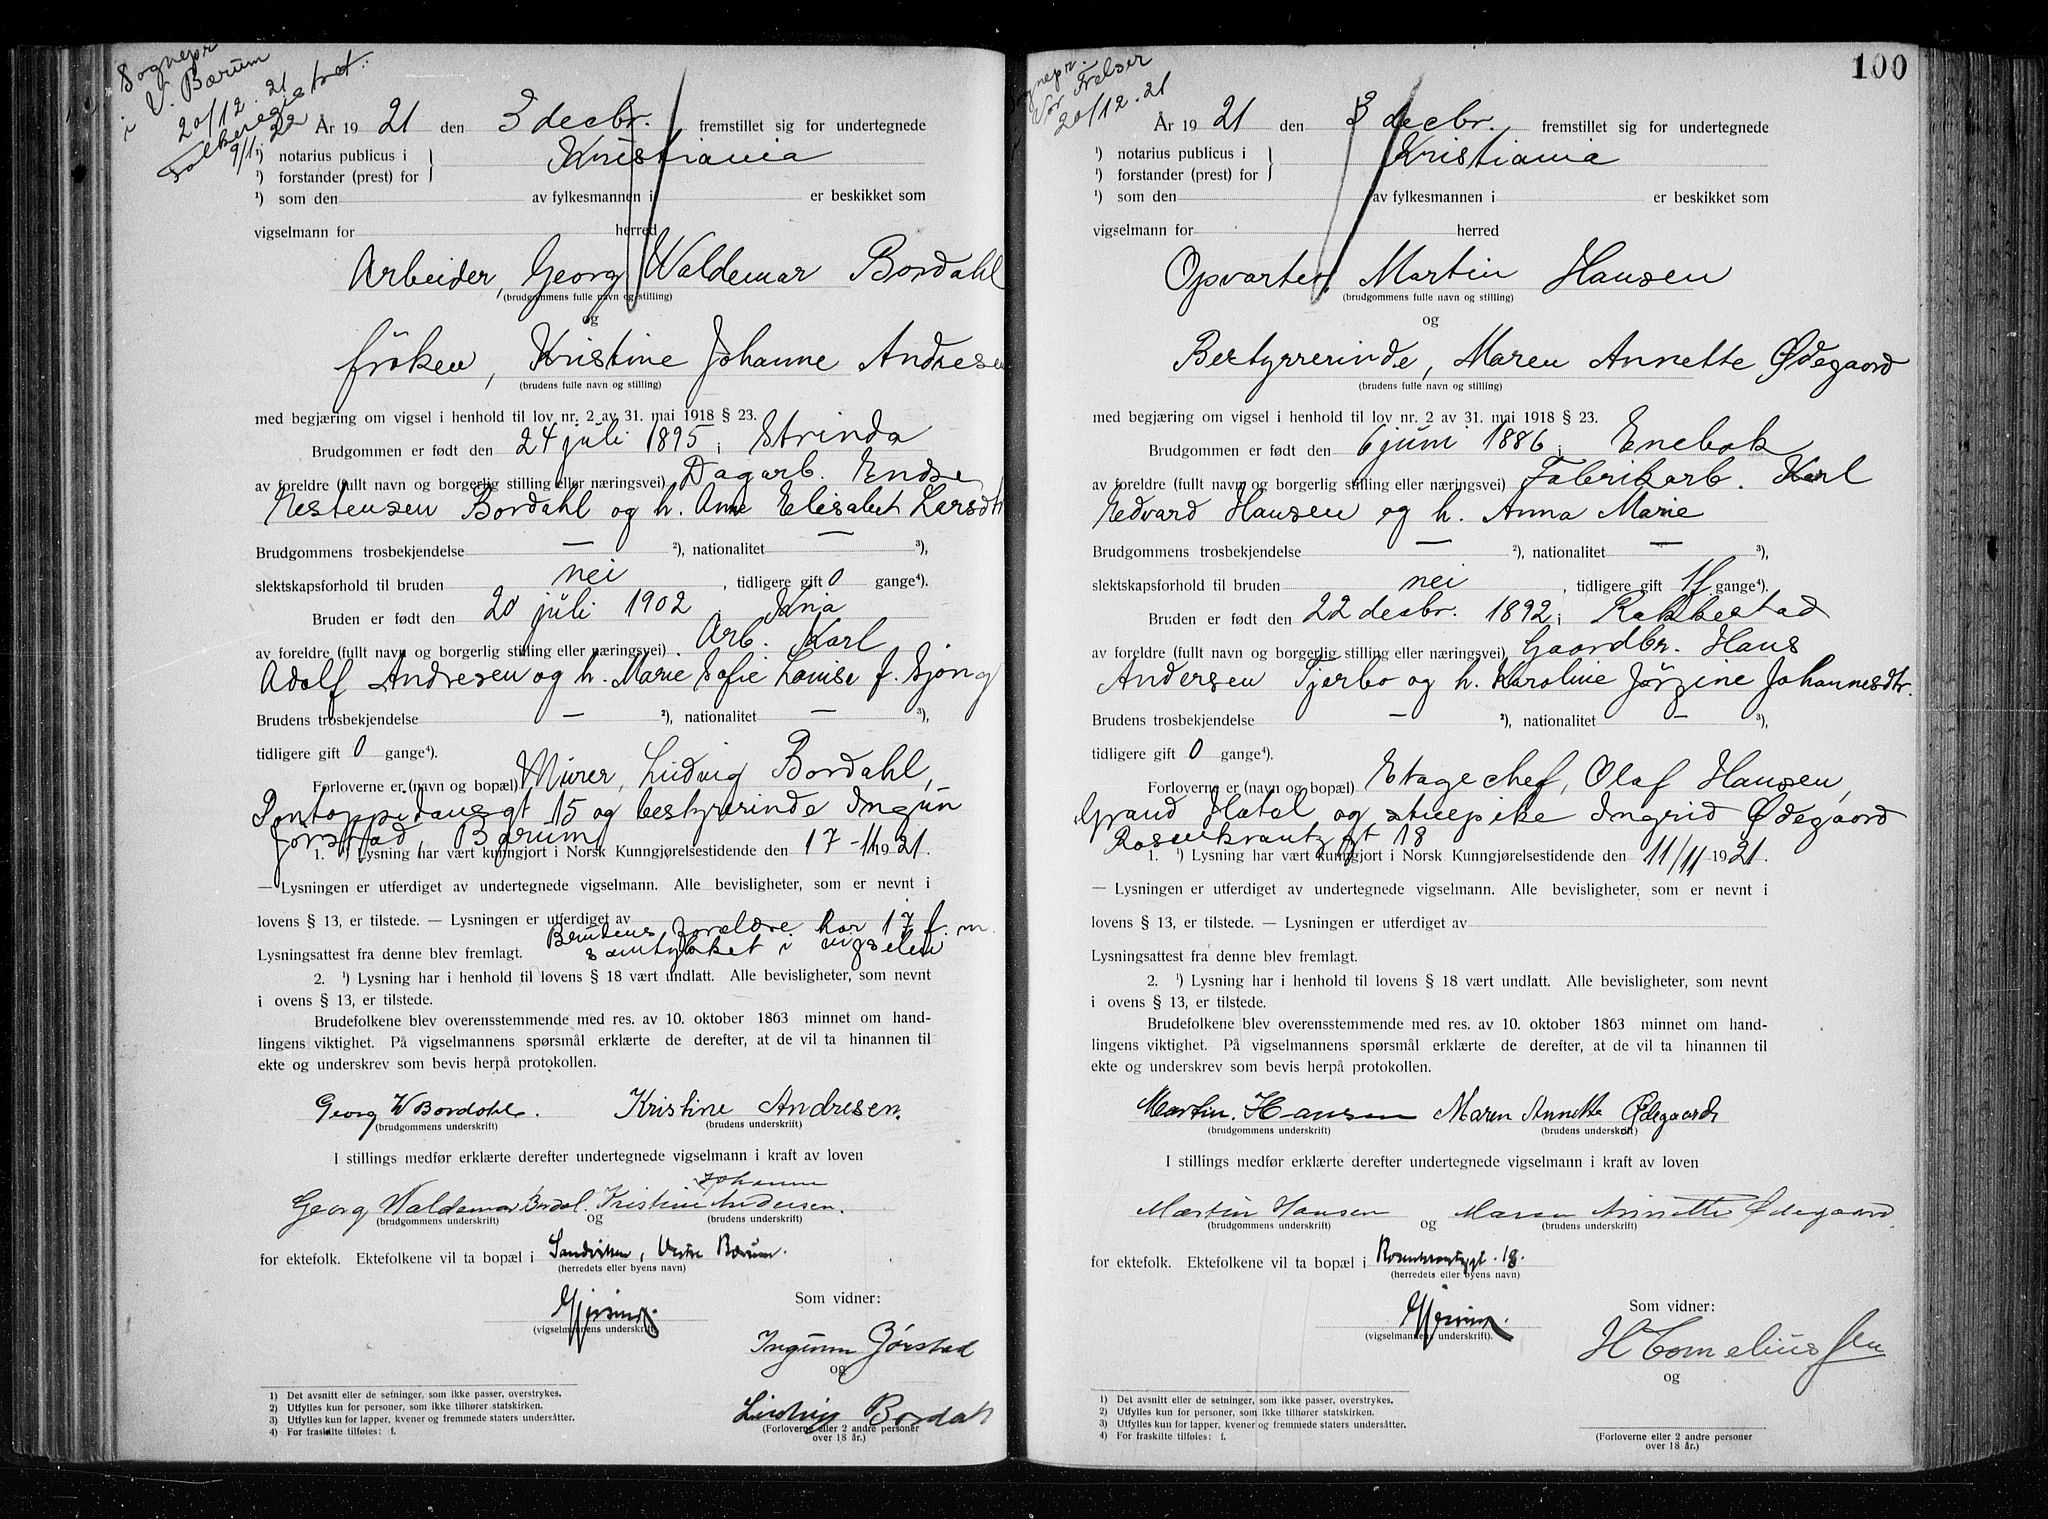 Sognepr
i V. Bærum
20/12. 21
Folkeregistret.
9/1. 22
År 1921 den 3 decbr. fremstillet sig for undertegnede
¹) notarius publicus i } Kristiania
¹) forstander (prest) for
¹) som den av fylkesmannen i er beskikket som
vigselmann for herred
Arbeider, Georg Waldemar Bordahl
(brudgommens fulle navn og stilling)
og
fröken, Kristine Johanne Andresen
(brudens fulle navn og stilling)
med begjæring om vigsel i henhold til lov nr. 2 av 31. mai 1918 § 23.
Brudgommen er født den 24 juli 1895 i Strinda
av foreldre (fullt navn og borgerlig stilling eller næringsvei) Dagarb. Endre
Estensen Bordahl og h. Anne Elisabet Larsdtr
Brudgommens trosbekjendelse — ²), nationalitet — ³),
slektskapsforhold til bruden nei , tidligere gift 0 gange⁴).
Bruden er født den 20 juli 1902
av foreldre (fullt navn og borgerlig stilling eller næringsvei) Arb. Karl
Adolf Andresen og h. Marie Sofie Louise f. Sjong
Brudens trosbekjendelse — ²), nationalitet — ³),
tidligere gift 0 gange⁴).
Forloverne er (navn og bopæl) Murer, Ludvig Bordahl,
Pontoppidansgt 15 og bestyrerinde Ingun
Jørstad, Bærum
1. ¹) Lysning har vært kunngjort i Norsk Kunngjørelsestidende den 17-11 1921.
— Lysningen er utferdiget av undertegnede vigselmann. Alle bevisligheter, som er nevnt i
lovens § 13, er tilstede. — Lysningen er utferdiget av
Brudens forældre har 17 f. m.
Lysningsattest fra denne blev fremlagt. samtykket i vigselen
2. ¹) Lysning har i henhold til lovens § 18 vært undlatt. Alle bevisligheter, som nevnt
i ovens § 13, er tilstede.
Brudefolkene blev overensstemmende med res. av 10. oktober 1863 minnet om hand-
lingens viktighet. På vigselmannens spørsmål erklærte de derefter, at de vil ta hinannen til
ekte og underskrev som bevis herpå protokollen.
Georg W Bordahl. Kristine Andresen.
(brudgommens underskrift) (brudens underskrift)
I stillings medfør erklærte derefter undertegnede vigselmann i kraft av loven
Johanne
Georg Waldemar Bordal. Kristine Andersen.
(brudgommens underskrift) og (brudens underskrift)
for ektefolk. Ektefolkene vil ta bopæl i Sandviken, Vestre Bærum.
(herredets eller byens navn)
Som vidner:
(vigselmannens underskrift)
Ingunn Jørstad
og
Ludvig Bordahl
(Forloverne eller 2 andre personer
over 18 år.)
1) Det avsnitt eller de setninger, som ikke passer, overstrykes.
2) Utfylles kun for personer, som ikke tilhører statskirken.
3) Utfylles kun for lapper, kvener og fremmede staters undersåtter.
4) For fraskilte tilføies: f.
100
Sognepr.
Vor Frelser
20/12. 21
År 1921 den 3 decbr. fremstillet sig for undertegnede
¹) notarius publicus i } Kristiania
¹) forstander (prest) for
¹) som den av fylkesmannen i er beskikket som
vigselmann for herred
Opvarter, Martin Hansen
(brudgommens fulle navn og stilling)
og
Bestyrerinde, Maren Annette Ødegaard
(brudens fulle navn og stilling)
med begjæring om vigsel i henhold til lov nr. 2 av 31. mai 1918 § 23.
Brudgommen er født den 6 juni 1886 i Enebak
av foreldre (fullt navn og borgerlig stilling eller næringsvei) Fabrikarb. Karl
Edvard Hansen og h. Anna Marie
Brudgommens trosbekjendelse — ²), nationalitet — ³),
slektskapsforhold til bruden nei , tidligere gift 1f. gange⁴).
Bruden er født den 22 decbr. 1892 i Rakkestad
av foreldre (fullt navn og borgerlig stilling eller næringsvei) Gaardbr. Hans
Andersen Tjerbo og h. Karoline Jørgine Johannesdtr.
Brudens trosbekjendelse — ²), nationalitet — ³),
tidligere gift 0 gange⁴).
Forloverne er (navn og bopæl) Etagechef, Olaf Hansen,
Grand Hotel og stuepike Ingrid Ødegaard
Rosenkrantzgt 18
1. ¹) Lysning har vært kunngjort i Norsk Kunngjørelsestidende den 11/11 1921.
— Lysningen er utferdiget av undertegnede vigselmann. Alle bevisligheter, som er nevnt i
lovens § 13, er tilstede. — Lysningen er utferdiget av
Lysningsattest fra denne blev fremlagt.
2. ¹) Lysning har i henhold til lovens § 18 vært undlatt. Alle bevisligheter, som nevnt
i ovens § 13, er tilstede.
Brudefolkene blev overensstemmende med res. av 10. oktober 1863 minnet om hand-
lingens viktighet. På vigselmannens spørsmål erklærte de derefter, at de vil ta hinannen til
ekte og underskrev som bevis herpå protokollen.
Martin. Hansen Maren Annette Ødegaard
(brudgommens underskrift) (brudens underskrift)
I stillings medfør erklærte derefter undertegnede vigselmann i kraft av loven
Martin Hansen Maren Annette Ødegaard.
(brudgommens underskrift) og (brudens underskrift)
for ektefolk. Ektefolkene vil ta bopæl i Rosenkrantzgt. 18.
(herredets eller byens navn)
Som vidner:
(vigselmannens underskrift).
H Cornelius
og
(Forloverne eller 2 andre personer
over 18 år.)
1) Det avsnitt eller de setninger, som ikke passer, overstrykes.
2) Utfylles kun for personer, som ikke tilhører statskirken.
3) Utfylles kun for lapper, kvener og fremmede staters undersåtter.
4) For fraskilte tilføies: f.